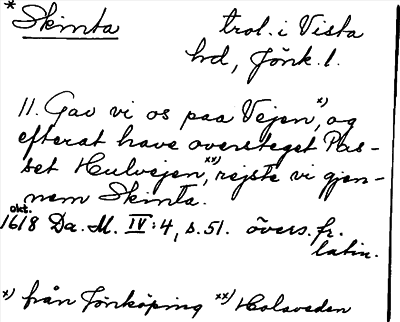 *Skinta trol. i Vista
hd, Jönk. l.
11. Gav vi os paa Vejen,x) og
efterat have oversteget Pas-
set Hulvejen,xx) rejste vi gjen-
nem Skinta.
okt.
1618 Da. M. IV:4, s. 51. övers. fr.
latin.
x) från Jönköping xx) Holaveden